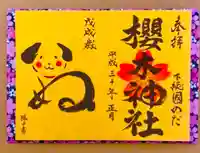 奉拝
下総国のだ
櫻木神社
平成三十年正月
戊戌歳
ぬ